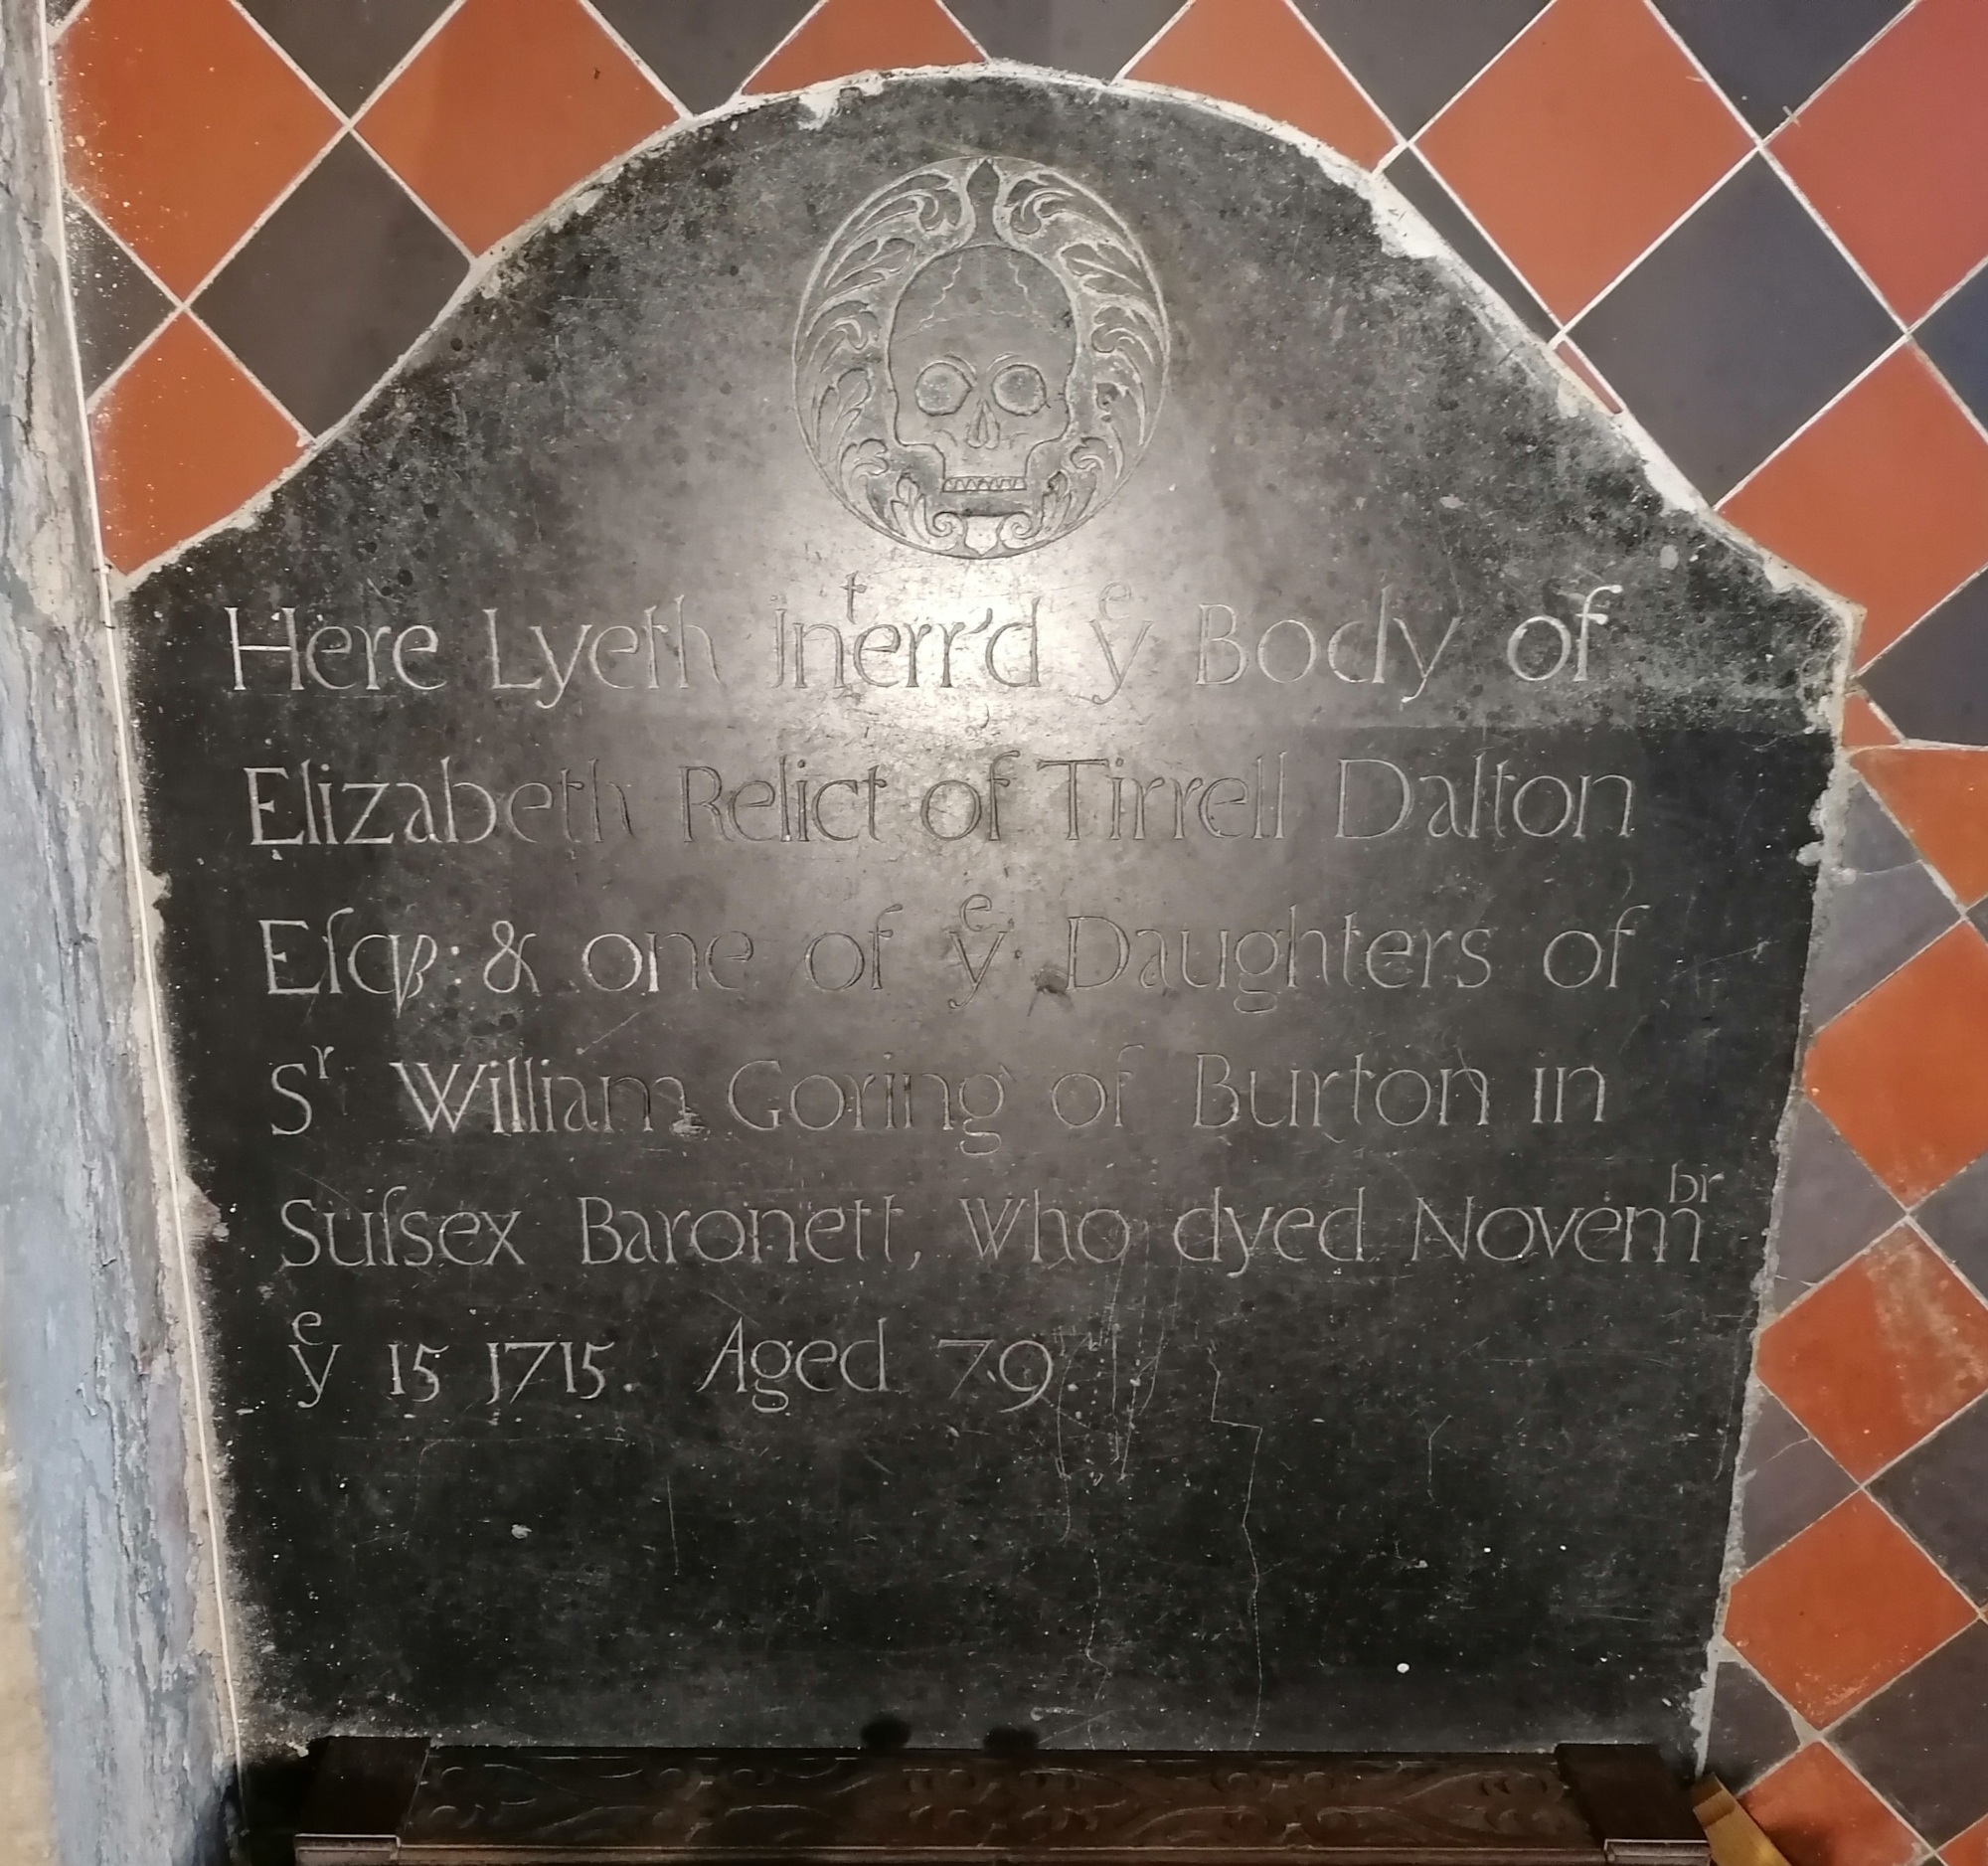 Here Lyeth Jnᵗerr'd yᵉ Body of
Elizabeth Relict of Tirrell Dalton
Eſqꝫ· & one of yᵉ· Daughters of
Sʳ William Goring of Burton in
Suſsex Baronett, who dyed Novemᵇʳ
yᵉ 15 1715. Aged 79